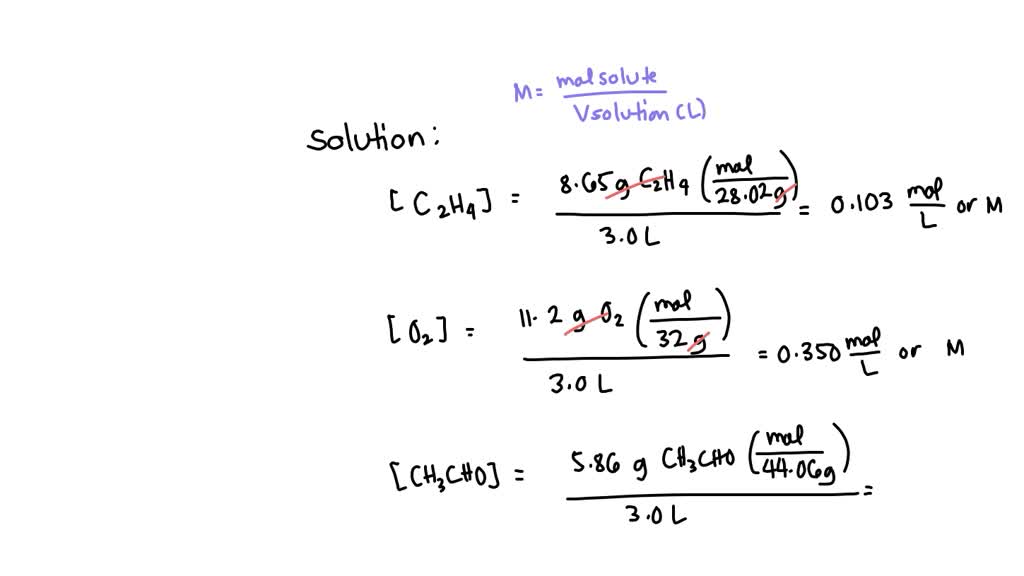 M = mol solute / V solution (L)
Solution:
[C₂H₄] = 8.65 g C₂H₄ (mol / 28.02 g) / 3.0 L = 0.103 mol / L or M
[O₂] = 11.2 g O₂ (mol / 32 g) / 3.0 L = 0.350 mol / L or M
[CH₃CHO] = 5.86 g CH₃CHO (mol / 44.06 g) / 3.0 L =